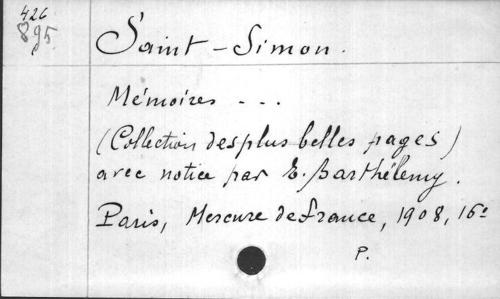 426
895
Saint-Simon.
Mémoires ...
(Collection des plus belles pages)
avec notice par E. Barthélemy.
Paris, Mercure de France, 1908, 16º
P.